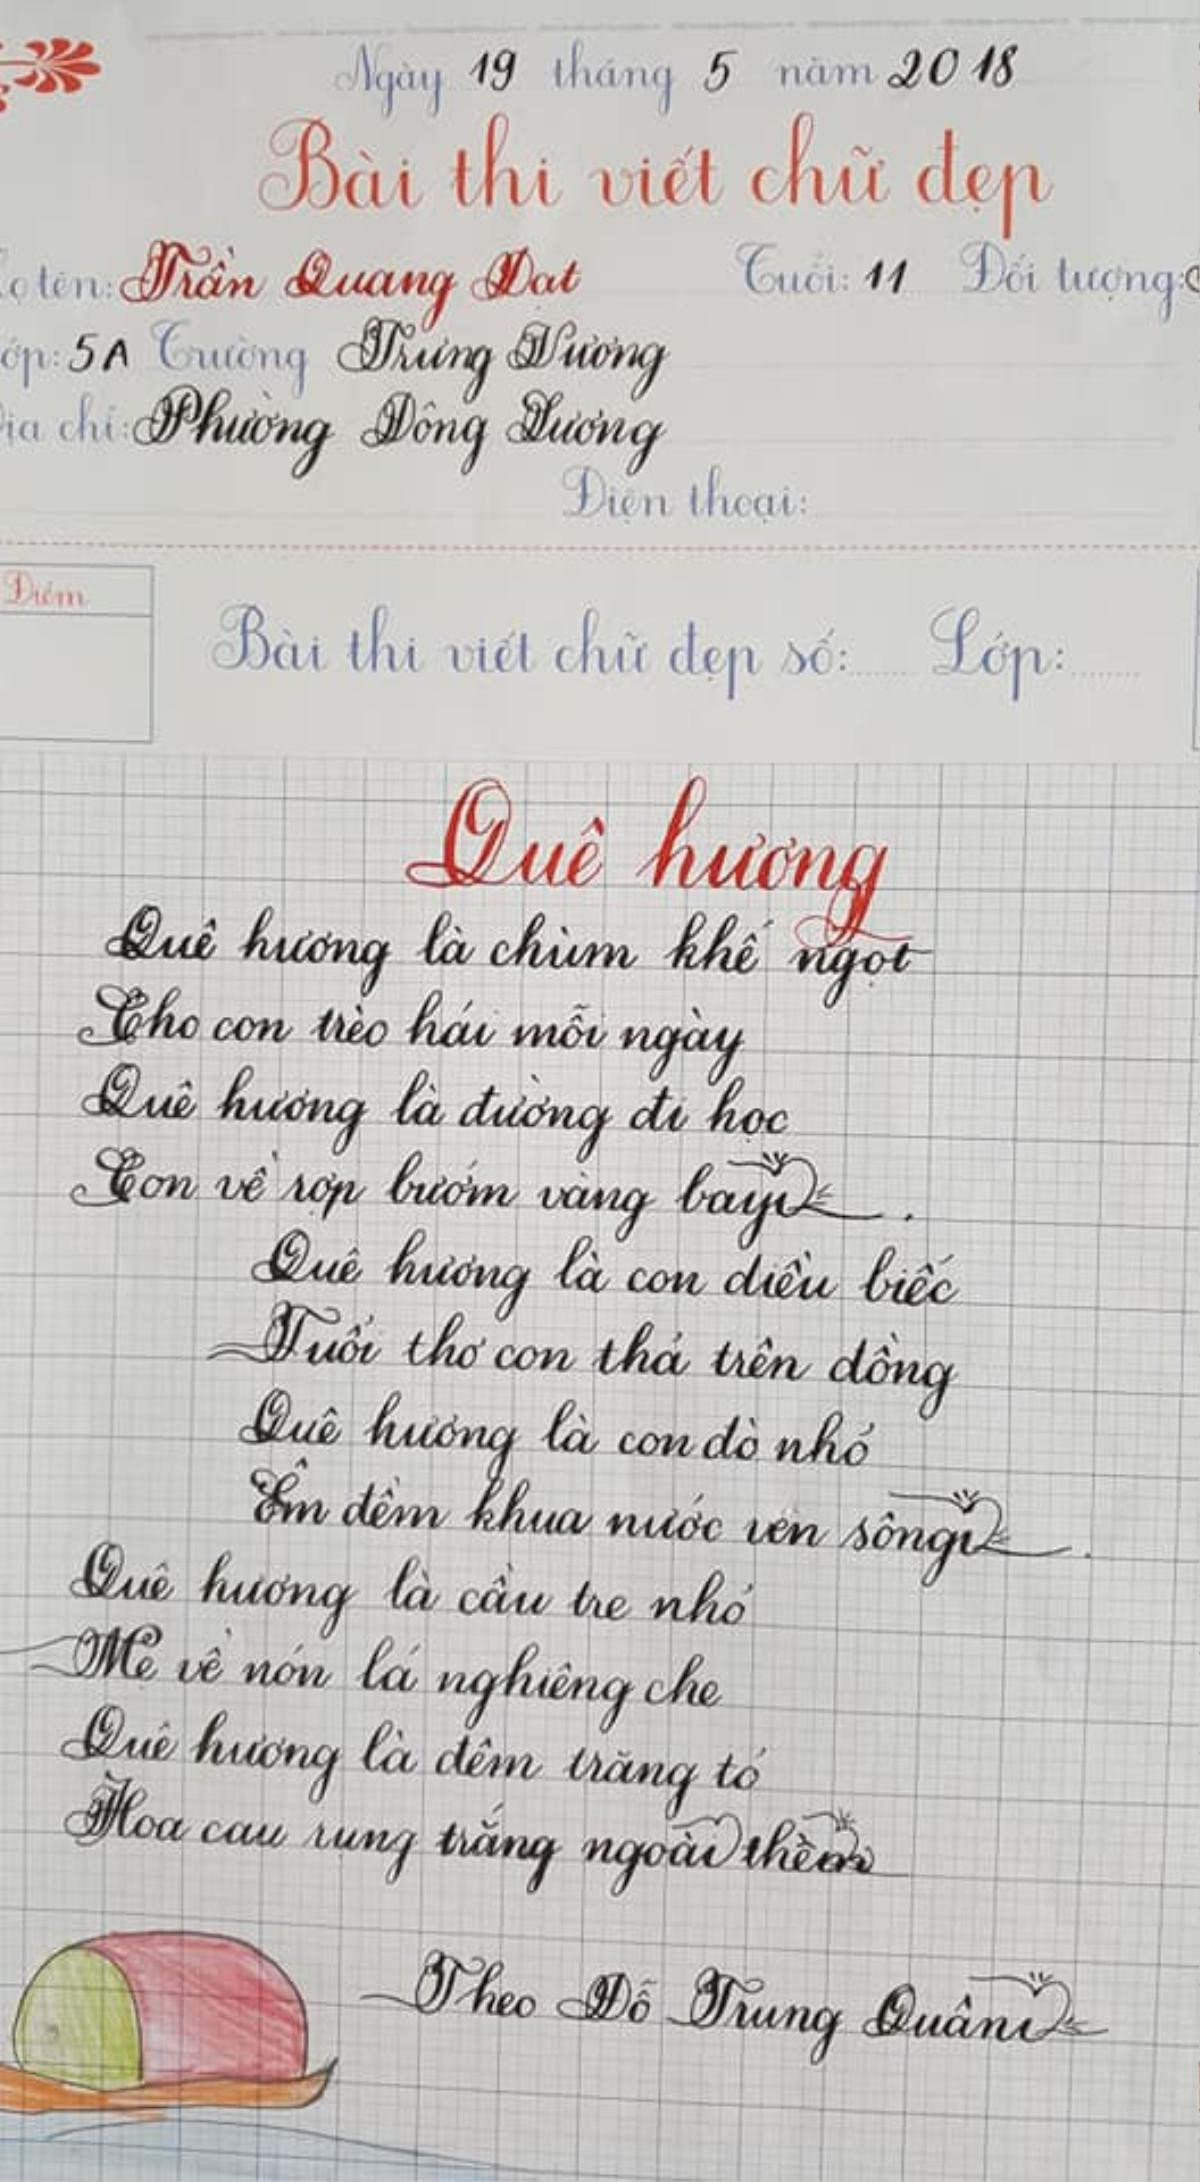 Ngày 19 tháng 5 năm 2018
Bài thi viết chữ đẹp
ọ tên: Trần Quang Đạt Tuổi: 11 Đối tượng:
ớp: 5A Trường Trưng Vương
Địa chỉ: Phường Đông Lương
Điện thoại:
Điểm
Bài thi viết chữ đẹp số:...... Lớp:.......
Quê hương
Quê hương là chùm khế ngọt
Cho con trèo hái mỗi ngày
Quê hương là đường đi học
Con về rợp bướm vàng bay.
Quê hương là con diều biếc
Tuổi thơ con thả trên đồng
Quê hương là con đò nhỏ
Êm đềm khua nước ven sông.
Quê hương là cầu tre nhỏ
Mẹ về nón lá nghiêng che
Quê hương là đêm trăng tỏ
Hoa cau rụng trắng ngoài thềm
Theo Đỗ Trung Quân